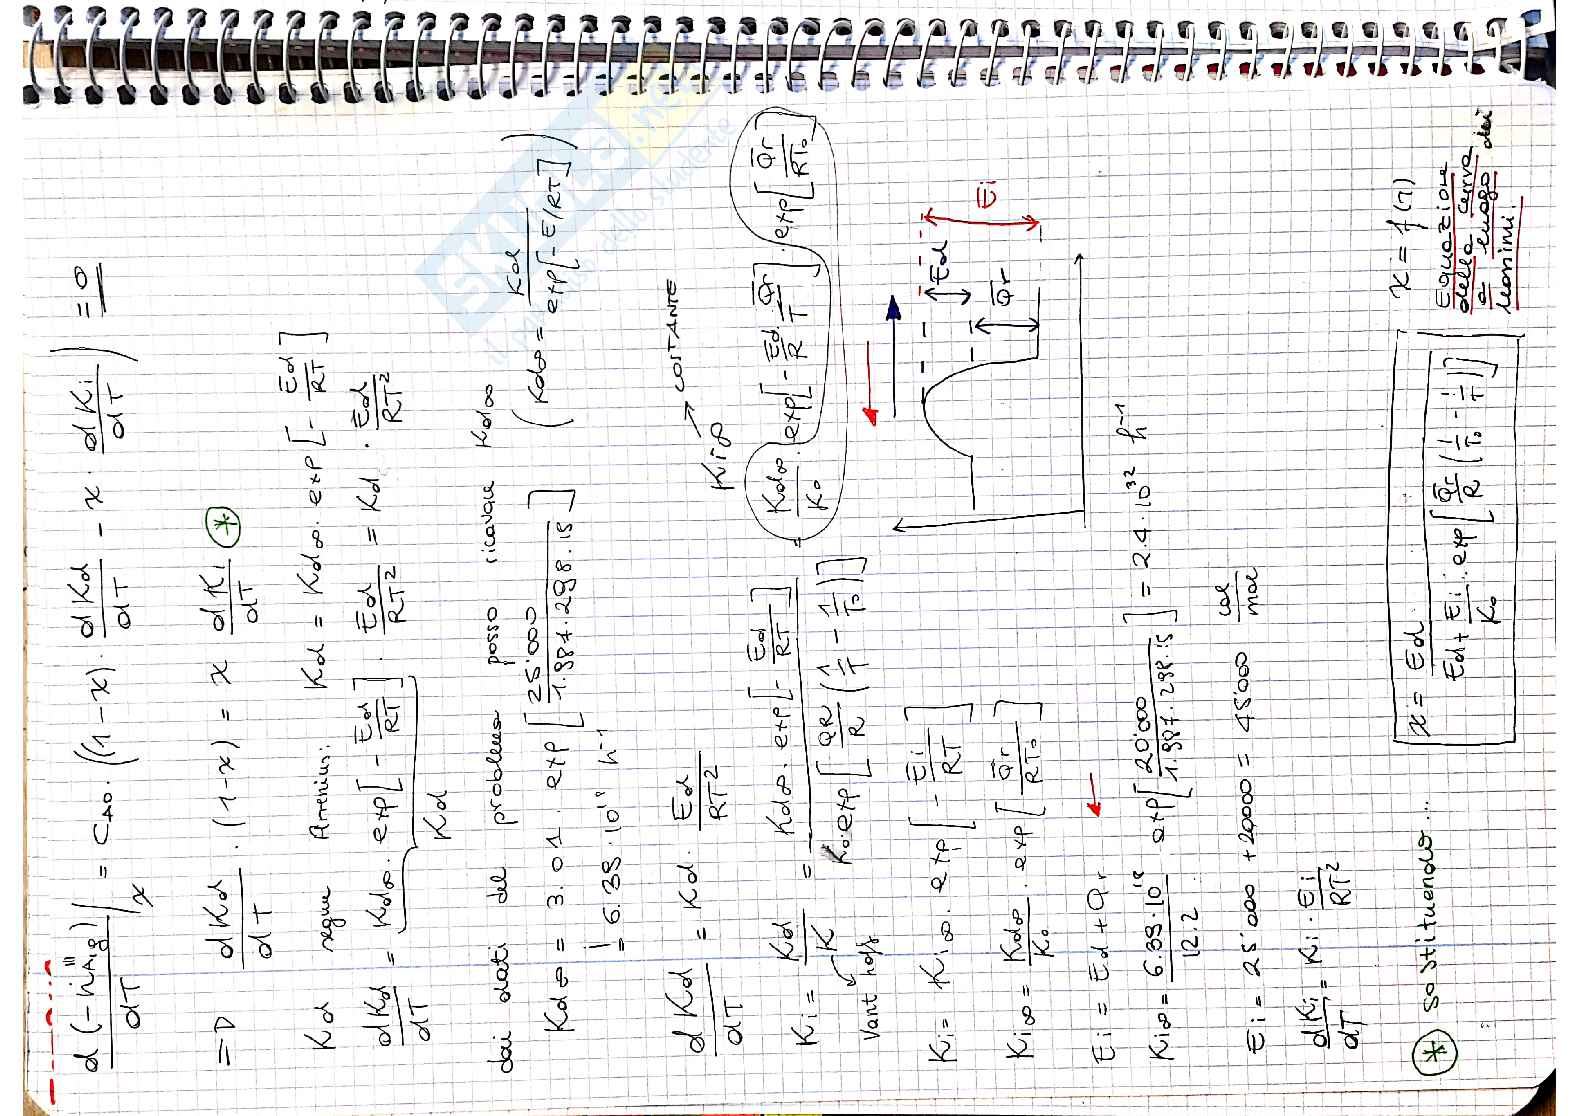 d(-ṅ'''A,g)/dT |x = CAO · ((1-x) · dKd/dT - x · dKi/dT) = 0
=D dKd/dT · (1-x) = x dKi/dT (*)
Kd segue Arrenius: Kd = Kd∞ · exp[-Ed/RT]
dKd/dT = Kd∞ · exp[-Ed/RT] · Ed/RT² = Kd · Ed/RT²
Kd
dai dati del problema posso ricavare Kd∞
Kd∞ = 3.01 · exp[25'000/1.987·298.15] (Kd∞ = Kd/exp[-E/RT])
= 6.38·10¹⁸ h⁻¹
dKd/dT = Kd · Ed/RT²
Ki∞ → COSTANTE
Ki = Kd/K = Kd∞·exp[-Ed/RT]/K₀·exp[QR/R(1/T - 1/T₀)] = Kd∞/K₀ · exp[-Ed/R - Qr/T] exp[Qr/RT₀]
Vant hoff
Ki = Ki∞ · exp[-Ei/RT]
Ki∞ = Kd∞/K₀ · exp[Qr/RT₀]
Ed
Qr
Ei
Ei = Ed + Qr
Ki∞ = 6.38·10¹⁸/12.2 · exp[20'000/1.987·298.15] = 2.4·10³² h⁻¹
Ei = 25'000 + 20000 = 45'000 cal/mol
dKi/dT = Ki · Ei/RT²
(*) sostituendo...
x = Ed/Ed + Ei/K₀ · exp[Qr/R(1/T₀ - 1/T)]
x = f(T)
Equazione
della curva
a luogo dei
massimi.